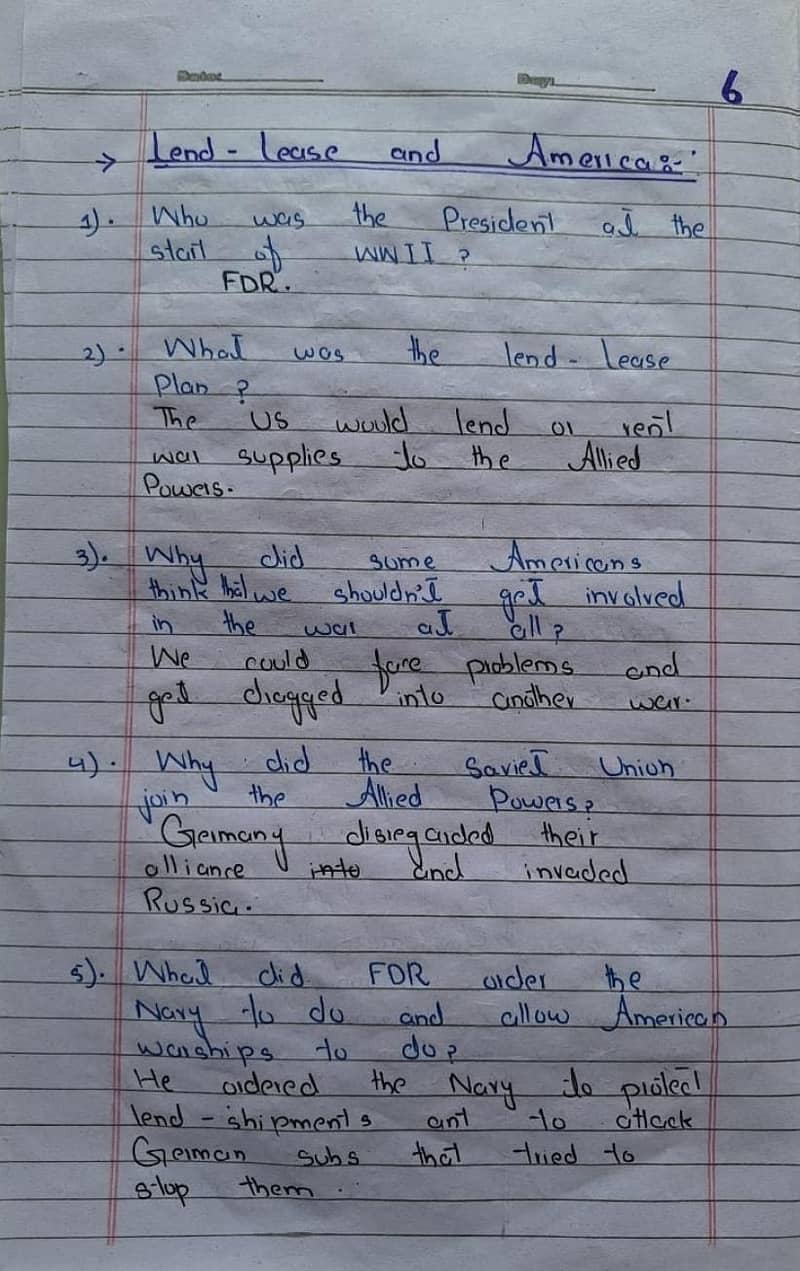 Date:
Day:
6
→ Lend - lease and America:-
1). Who was the President at the
start of WWII ?
FDR.
2). What was the lend - lease
Plan ?
The US would lend or rent
war supplies to the Allied
Powers.
3). Why did some Americans
think that we shouldn't get involved
in the war at all ?
We could face problems and
get dragged into another war.
4). Why did the Saviet Union
join the Allied Powers?
Germany disregarded their
alliance into and invaded
Russia.
5). What did FDR order the
Navy to do and allow American
warships to do ?
He ordered the Navy to protect
lend - shipments ant to attack
German subs that tried to
stop them .